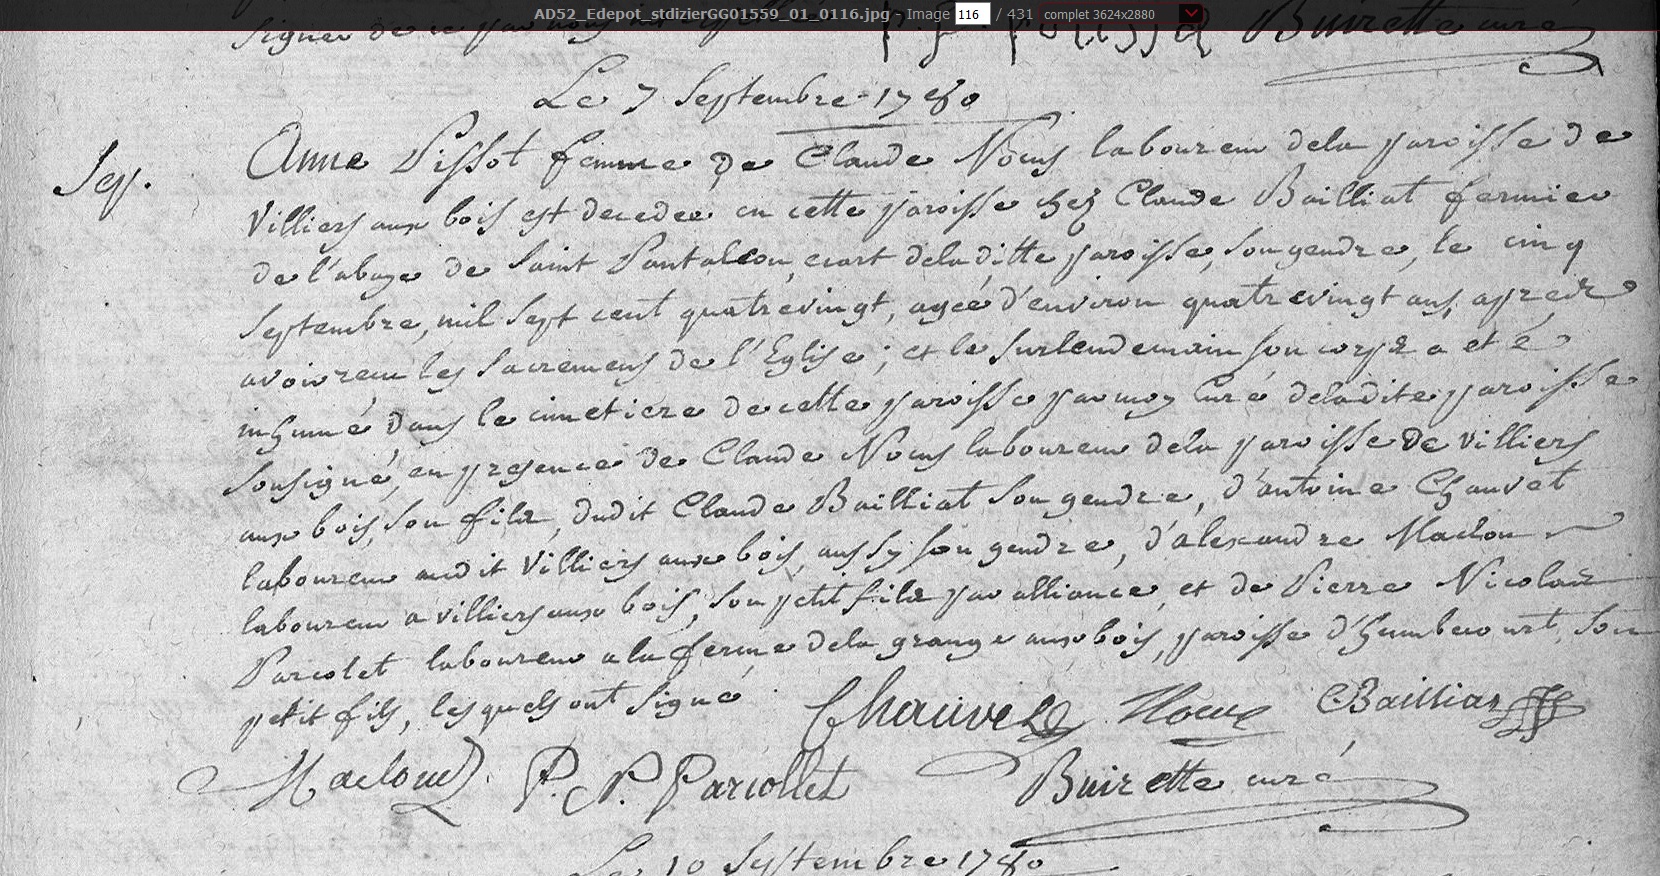 AD52_Edepot_stdizierGG01559_01_0116.jpg - Image 116 / 431 complet 3624x2880
Buirette curé
Le 7 Septembre 1780
Sep.
Anne Pissot femme de Claude Nous laboureur dela paroisse de
Villiers aux bois est decedee en cette paroisse chez Claude Bailliat fermier
de l'abaye de Saint Pantaleon, ecart deladitte paroisse, son gendre, le cinq
Septembre, mil sept cent quatrevingt, ageé d'environ quatrevingt ans, apred
avoir recu les sacremens de l'Eglise ; et le surlendemain son corps a eté
inhumé dans le cimetiere de cette paroisse par moy Curé deladite paroisse
sousigné, en presence de Claude Nous laboureur dela paroisse de villiers
aux bois, son fils, dudit Claude Bailliat son gendre, d'antoine Chauvet
laboureur audit Villiers aux bois, aussy son gendre, d'alexandre Maclou
laboureur a villiers aux bois, son petit fils par alliance, et de Pierre Nicolas
Parcolet laboureur a la ferme dela grange aux bois, paroisse d'humbecourt, son
petit fils, lesquels ont signé Chauvet Nous CBailliat
Maclou P. N. Parcollet Buirette curé
Le 10 Septembre 1780